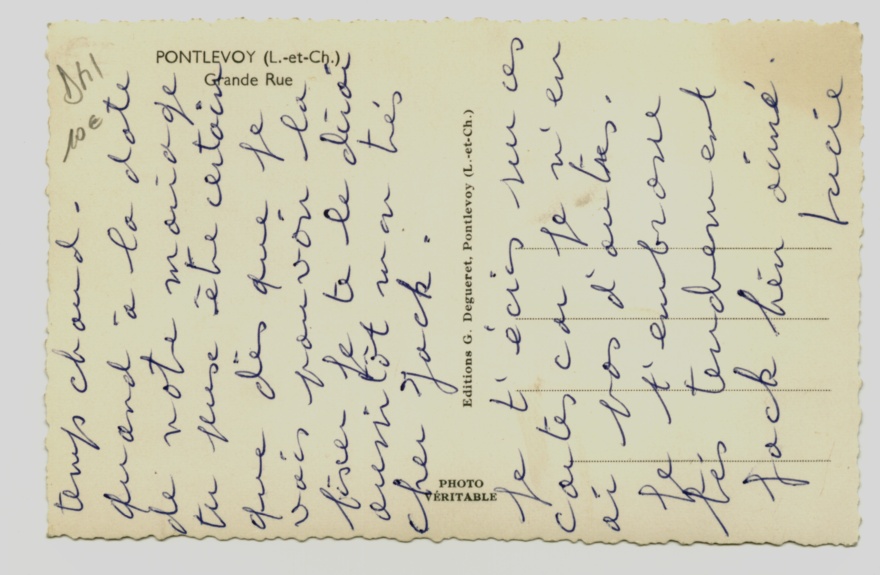 PONTLEVOY (L.-et-Ch.)
Grande Rue
10€
temps chaud.
quand à la date
de notre mariage
tu peux être certain
que dès que je
vais pouvoir la
fixer je te le dirai
aussitôt mon très
cher Jack.
Editions G. Degueret, Pontlevoy (L.-et-Ch.)
PHOTO
VÉRITABLE
Je t'écris sur ces
cartes car je n'en
ai pas d'autres.
Je t'embrasse
très tendrement
Jack bien aimé.
Lucie